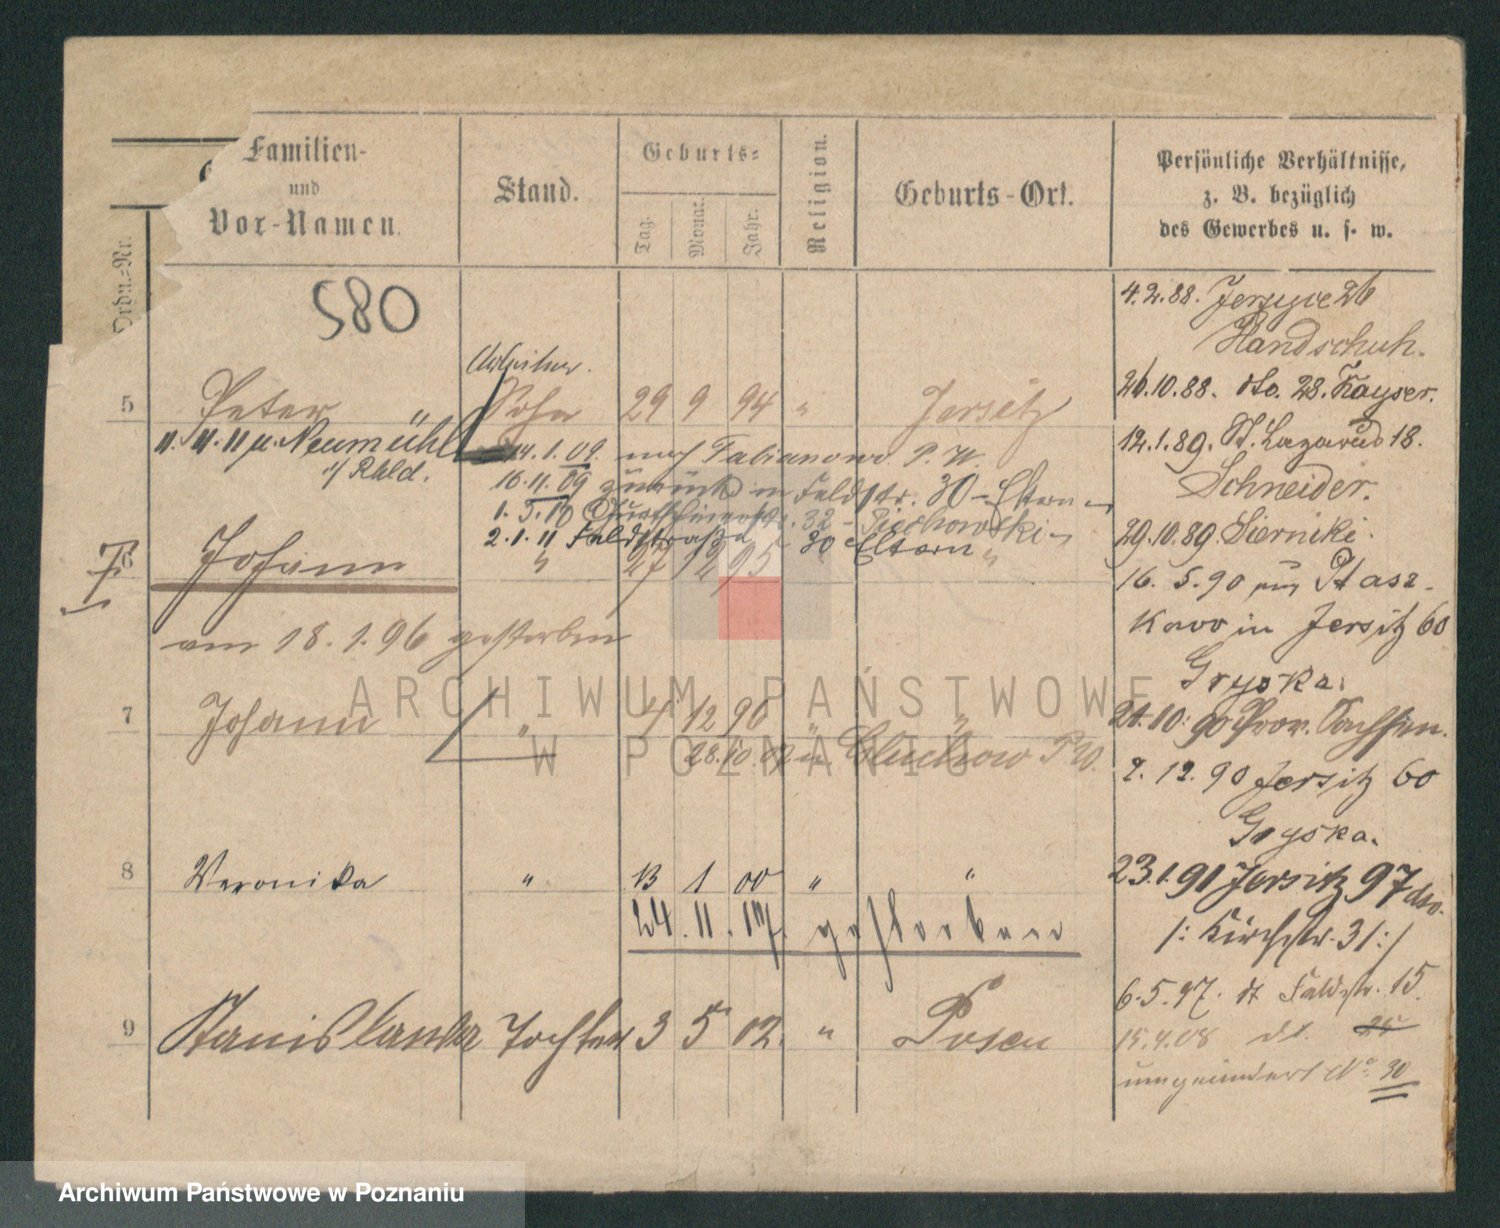 Ordn.-Nr.
Familien-
und
Vor-Namen.
Stand.
Geburts-
Tag.
Monat.
Jahr.
Religion.
Geburts-Ort.
Persönliche Verhältnisse,
z. B. bezüglich
des Gewerbes u. s. w.
580
Arbeiter.
5 Peter Sohn 29 9 94 " Jersitz
11. 11. 11 n. Neumühl
i/ Rhld.
14.1.09. nach Fabianowo P. W.
16.11.09 zurück in Feldstr. 30 - Eltern
1.5.10 32 - Piechowski -
2.1.11 Feldstraße 30 Eltern
6 Johann " 27 12 95 "
am 18.1.96 gestorben
7 Johann " 4 12 96 " "
28.10.02 n Gluchowo P W.
8 Veronika " 13 1 00 " "
24. 11. 17. gestorben
9 Stanislawa Tochter 3 5 02. " Posen
4.2.88. Jersyce 26
Handschuh.
26.10.88. dto. 28. Kayser.
12.1.89. St. Lazarus 18.
Schneider.
29.10.89. Siernicki.
16. 5. 90 Ptasz-
kowo in Jersitz 60
Gryska.
21.10.90 Prov. Sachsen.
2. 12. 90 Jersitz 60
Gryska.
23.1.91 Jersitz 97 dso.
/: Kirchstr. 31 :/
6.5.97. dt Feldstr. 15.
15.4.08 dt. 25
umgeändert No. 30
ARCHIWUM PAŃSTWOWE
W POZNANIU
Archiwum Państwowe w Poznaniu